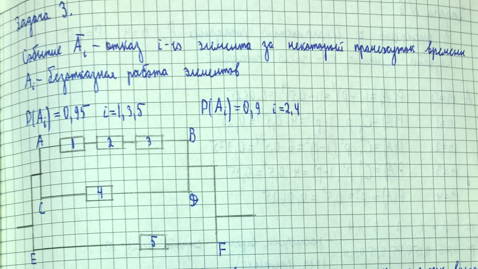 Задача 3.
Событие Ā_i – отказ i-го элемента за некоторый промежуток времени
A_i – безотказная работа элементов
P(A_i)=0,95 i=1,3,5 P(A_i)=0,9 i=2,4
A 1 2 3 B
C 4 D
E 5 F